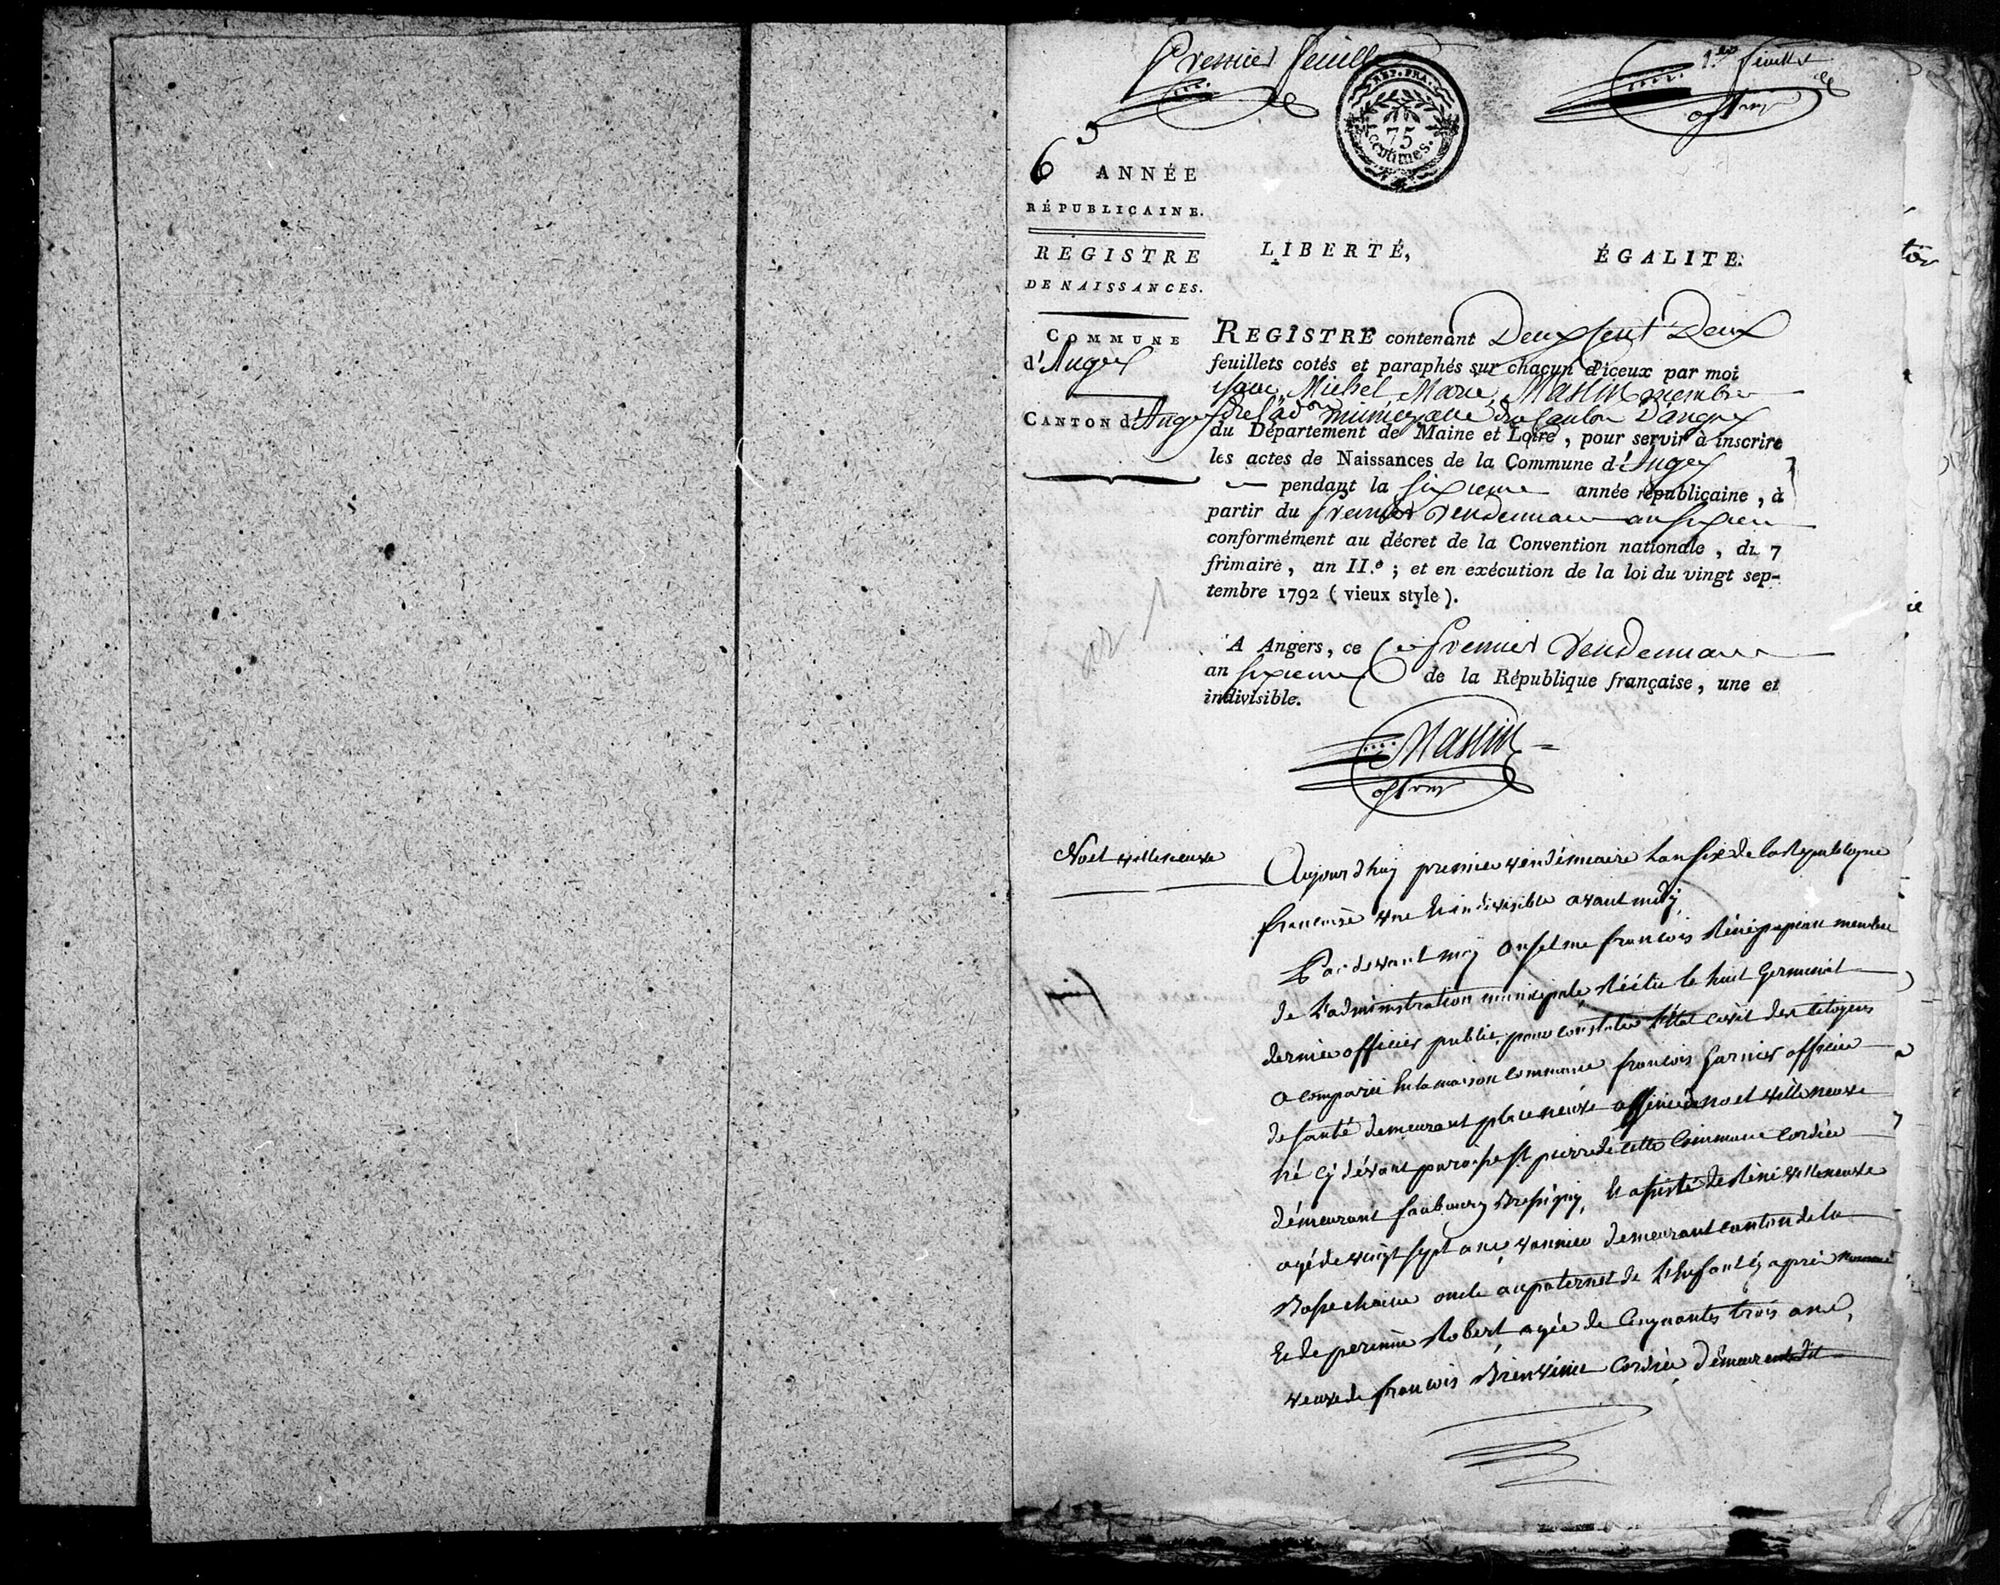 Premier feuillet
1.er feuillet
REP. FRA.
75
centimes.
6e ANNÉE
RÉPUBLICAINE.
REGISTRE
DE NAISSANCES.
COMMUNE
d'Angers
CANTON d'Angers
LIBERTÉ, ÉGALITÉ.
REGISTRE contenant Deux Cent Deux
feuillets cotés et paraphés sur chacun d'iceux par moi
Michel Marie Maslin membre
de l'adon municipalle du Canton D'angers
du Département de Maine et Loire, pour servir à inscrire
les actes de Naissances de la Commune d'Angers
pendant la sixieme année républicaine, à
partir du premier vendemiaire an sixieme
conformément au décret de la Convention nationale, du 7
frimaire, an II.e; et en exécution de la loi du vingt sep-
tembre 1792 (vieux style).
A Angers, ce premier vendemiaire
an sixieme de la République française, une et
indivisible.
Maslin
Noel villeneuve
Aujourd'huy premier vendémiaire l'an six de la Republique
francaise une et indivisible avant midy
Par devant moy anselme françois Réné papiau membre
de L'administration municipale Réélu le huit Germinal
dernier officier public pour constater L'état civil des citoyens
a comparu en la maison commune françois Garnier officier
de santé demeurant place neuve assisté de noel villeneuve
né cy devant paroisse St pierre de cette Commune cordier
démeurant faubourg Bressigny, et assisté de Réné villeneuve
agé de vingt sept ans vannier demeurant canton de la
Bassechaine oncle au paternel de L'enfant cy après nommé
Et de perinne Robert agée de Cinquante trois ans,
veuve de françois Bienvenu Cordier démeurant dit